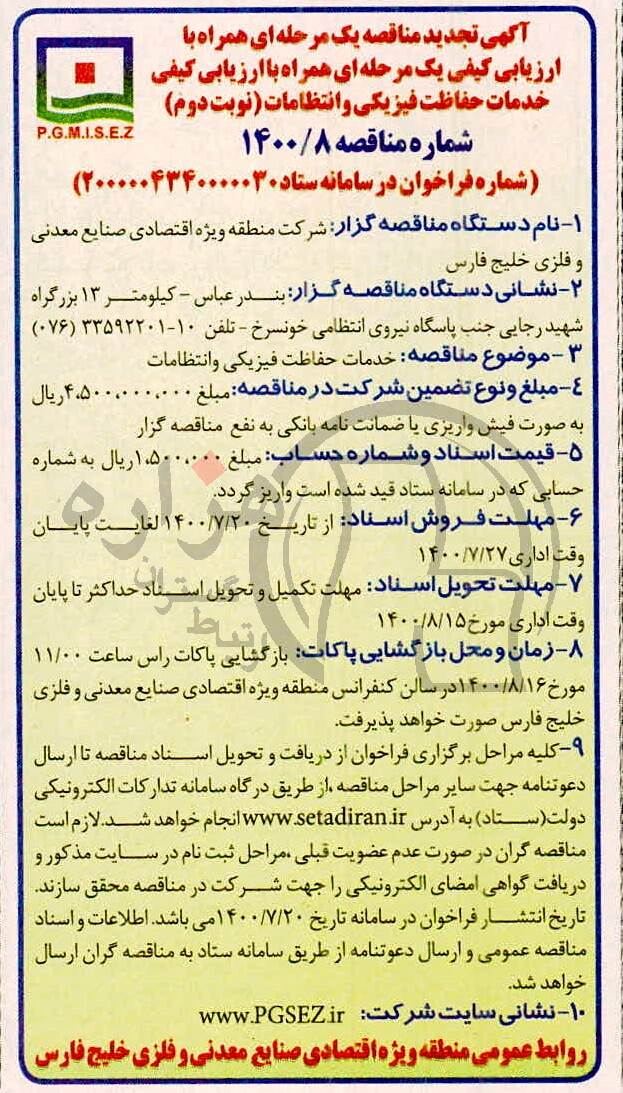 آگهی تجدید مناقصه یک مرحله ای همراه با
ارزیابی کیفی یک مرحله ای همراه با ارزیابی کیفی
خدمات حفاظت فیزیکی و انتظامات (نوبت دوم)
P.G.M.I.S.E.Z
شماره مناقصه ۱۴۰۰/۸
(شماره فراخوان در سامانه ستاد ۲۰۰۰۰۰۴۳۴۰۰۰۰۰۳۰)
۱-نام دستگاه مناقصه گزار: شرکت منطقه ویژه اقتصادی صنایع معدنی
و فلزی خلیج فارس
۲-نشانی دستگاه مناقصه گزار: بندر عباس - کیلومتر ۱۳ بزرگراه
شهید رجایی جنب پاسگاه نیروی انتظامی خونسرخ - تلفن ۱۰-۳۳۵۹۲۲۰۱ (۰۷۶)
۳-موضوع مناقصه: خدمات حفاظت فیزیکی وانتظامات
۴-مبلغ ونوع تضمین شرکت در مناقصه: مبلغ ۴،۵۰۰،۰۰۰،۰۰۰ریال
به صورت فیش واریزی یا ضمانت نامه بانکی به نفع مناقصه گزار
۵-قیمت اسناد و شماره حساب: مبلغ ۱،۵۰۰،۰۰۰ریال به شماره
حسابی که در سامانه ستاد قید شده است واریز گردد.
۶-مهلت فروش اسناد: از تاریخ ۱۴۰۰/۷/۲۰ لغایت پایان
وقت اداری ۱۴۰۰/۷/۲۷
۷-مهلت تحویل اسناد: مهلت تکمیل و تحویل اسناد حداکثر تا پایان
وقت اداری مورخ ۱۴۰۰/۸/۱۵
۸-زمان و محل بازگشایی پاکات: بازگشایی پاکات راس ساعت ۱۱/۰۰
مورخ ۱۴۰۰/۸/۱۶در سالن کنفرانس منطقه ویژه اقتصادی صنایع معدنی و فلزی
خلیج فارس صورت خواهد پذیرفت.
۹-کلیه مراحل برگزاری فراخوان از دریافت و تحویل اسناد مناقصه تا ارسال
دعوتنامه جهت سایر مراحل مناقصه ،از طریق درگاه سامانه تدارکات الکترونیکی
دولت(ستاد) به آدرس www.setadiran.ir انجام خواهد شد.لازم است
مناقصه گران در صورت عدم عضویت قبلی ،مراحل ثبت نام در سایت مذکور و
دریافت گواهی امضای الکترونیکی را جهت شرکت در مناقصه محقق سازند.
تاریخ انتشار فراخوان در سامانه تاریخ ۱۴۰۰/۷/۲۰می باشد. اطلاعات و اسناد
مناقصه عمومی و ارسال دعوتنامه از طریق سامانه ستاد به مناقصه گران ارسال
خواهد شد.
۱۰-نشانی سایت شرکت: www.PGSEZ.ir
روابط عمومی منطقه ویژه اقتصادی صنایع معدنی و فلزی خلیج فارس
هزاره
گستران
ارتباط